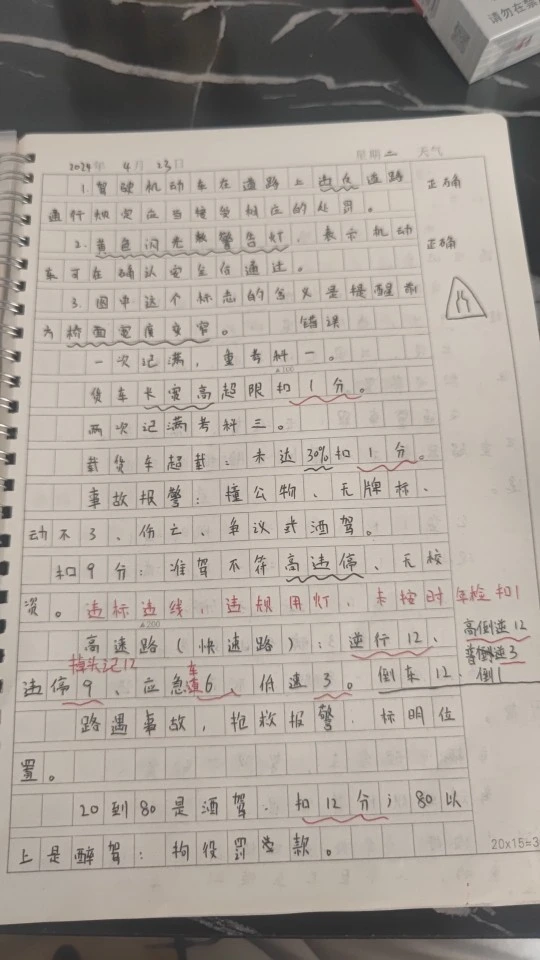 请勿在禁
2024年 4月 23日 星期二 天气
1.驾驶机动车在道路上违反道路 正确
通行规定应当接受相应的处罚。
2.黄色闪光警告灯，表示机动 正确
车可在确认安全后通过。
3.图中这个标志的含义是提醒前
方桥面宽度变窄。 错误
一次记满，重考科一。
▲100
货车长宽高超限扣1分。
两次记满考科三。
载货车超载：未达30%扣1分。
事故报警：撞公物、无牌标、
动不了、伤亡、争议或酒驾。
扣9分：准驾不符高违停、无校
资。违标违线，违规用灯，未按时年检扣1
▲200
高速路（快速路）：逆行12、 高倒逆12
掉头记12 车道 普倒逆3
违停9、应急6、低速3。倒车12、倒1
路遇事故，抢救报警，标明位
置。
20到80是酒驾，扣12分；80以
上是醉驾：拘役罚款。
20x15=3